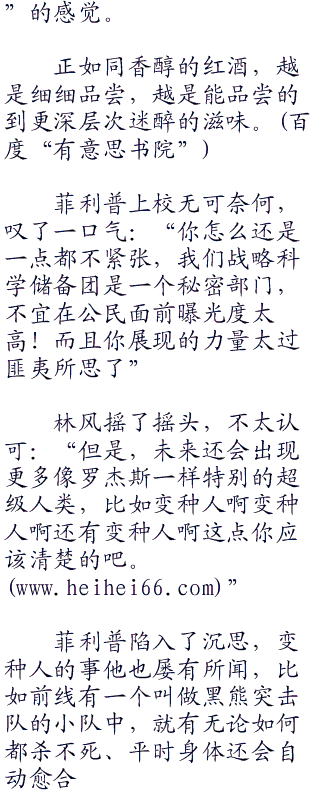 ”的感觉。
正如同香醇的红酒，越
是细细品尝，越是能品尝的
到更深层次迷醉的滋味。(百
度“有意思书院”)
菲利普上校无可奈何，
叹了一口气：“你怎么还是
一点都不紧张，我们战略科
学储备团是一个秘密部门，
不宜在公民面前曝光度太
高！而且你展现的力量太过
匪夷所思了”
林风摇了摇头，不太认
可：“但是，未来还会出现
更多像罗杰斯一样特别的超
级人类，比如变种人啊变种
人啊还有变种人啊这点你应
该清楚的吧。
(www.heihei66.com)”
菲利普陷入了沉思，变
种人的事他也屡有所闻，比
如前线有一个叫做黑熊突击
队的小队中，就有无论如何
都杀不死、平时身体还会自
动愈合